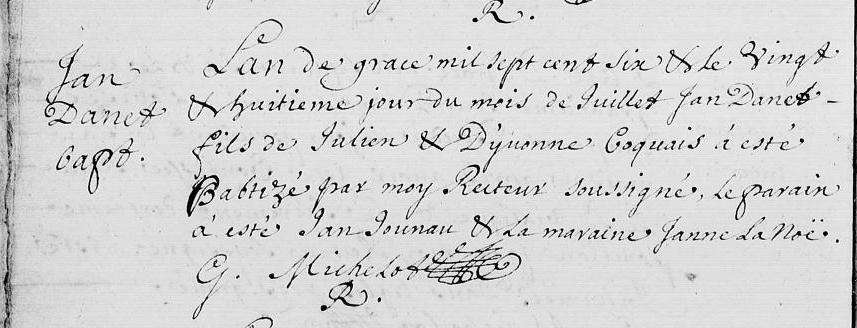 R.
Lan de grace mil sept cent six & le vingt
& huitieme jour du mois de Juillet Jan Danet -
fils de Julien & D'yvonne Coquais á esté
Babtizé par moy Recteur soussigné, le parain
á esté Jan Jounau & la maraine Janne La Noë.
G. Michelot
R.
Jan
Danet
bapt.